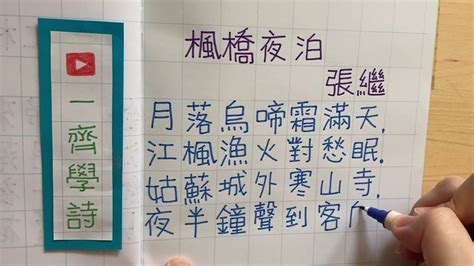 一齊學詩
楓橋夜泊
張繼
月落烏啼霜滿天.
江楓漁火對愁眠.
姑蘇城外寒山寺.
夜半鐘聲到客